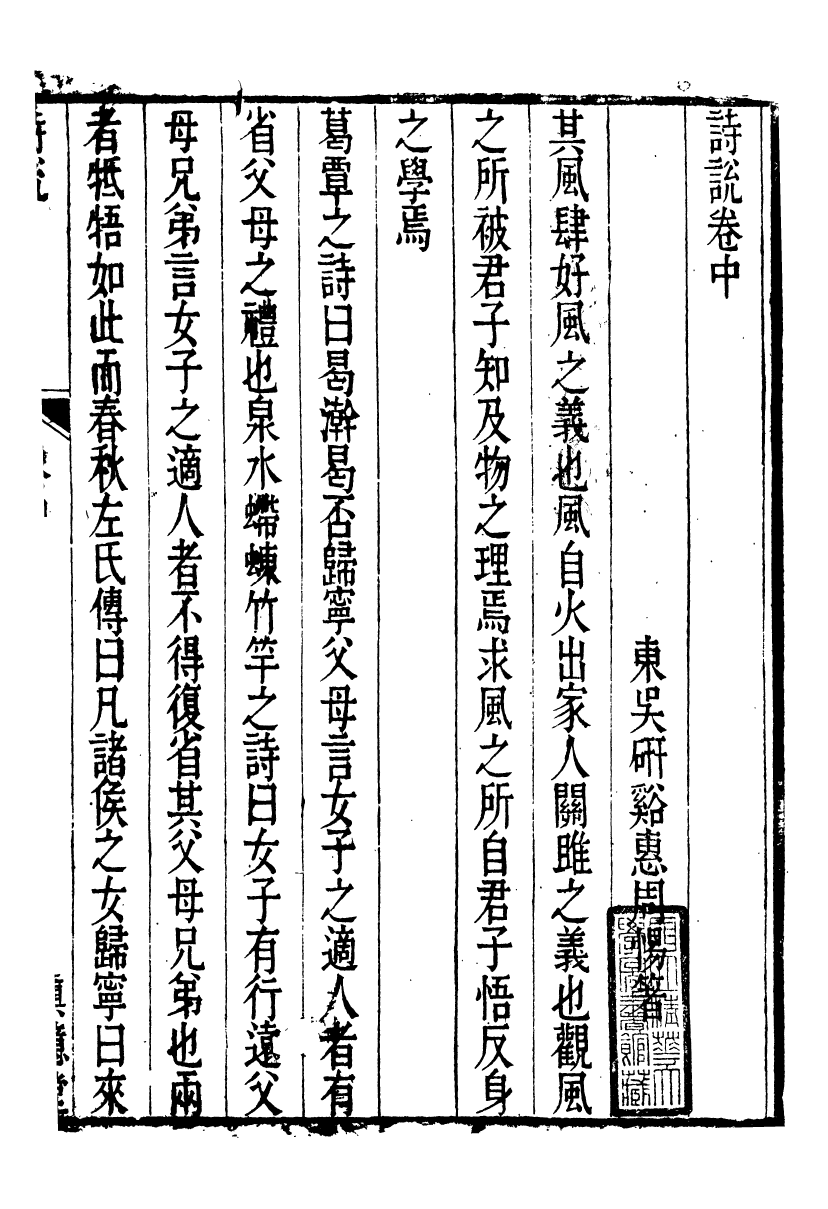 詩說卷中
東吳硏谿惠周惕著
其風肆好風之義也風自火出家人關雎之義也觀風
之所被君子知及物之理焉求風之所自君子悟反身
之學焉
葛覃之詩曰曷澣曷否歸寧父母言女子之適人者有
省父母之禮也泉水蝃蝀竹竿之詩曰女子有行遠父
母兄弟言女子之適人者不得復省其父母兄弟也兩
者牴牾如此而春秋左氏傳曰凡諸侯之女歸寧曰來